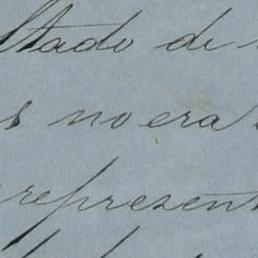 ltado de
s no era
represent